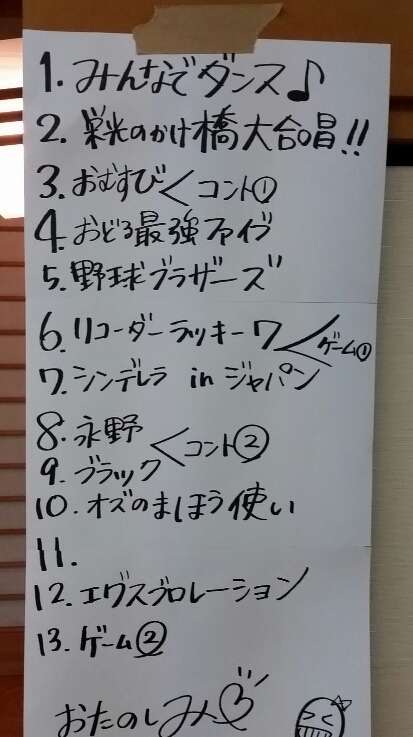 1. みんなでダンス♪
2. 栄光のかけ橋大合唱!!
3. おむすび<コント①
4. おどる最強ファイブ
5. 野球ブラザーズ
6. リコーダーラッキー7<ゲーム①
7. シンデレラ in ジャパン
8. 永野<コント②
9. ブラック
10. オズのまほう使い
11.
12. エグスプロレーション
13. ゲーム②
おたのしみ♡